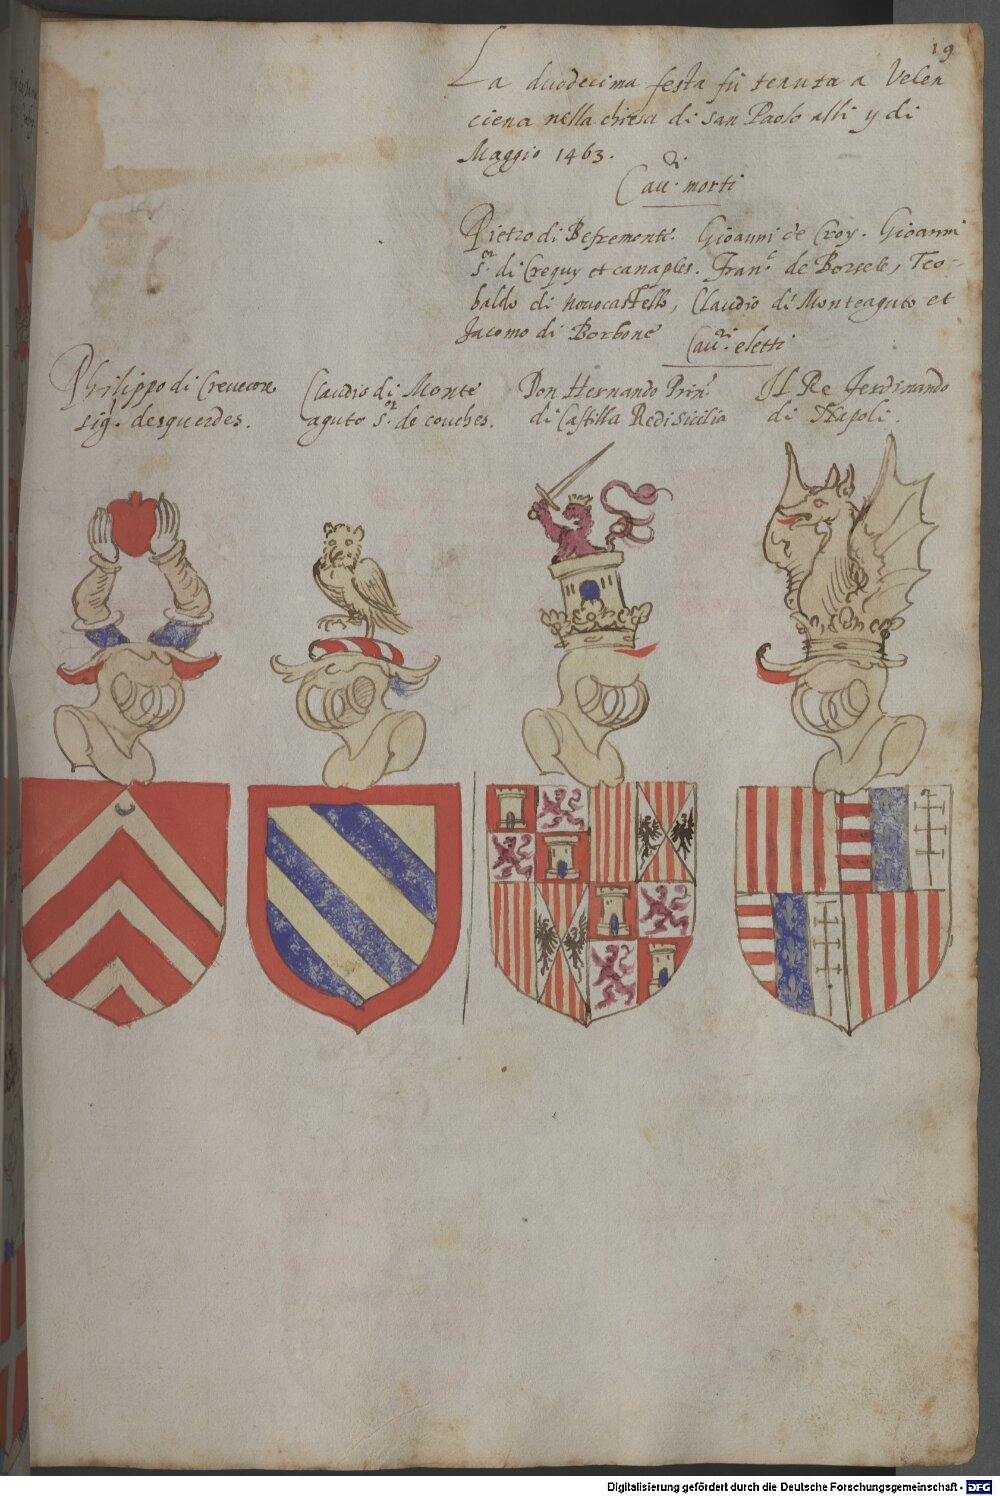 19
La duodecima festa fù tenuta a Velen
ciena nella chiesa di san Paolo alli y di
Maggio 1463.
Cau.ri morti
Pietro di Befrementi. Gioanni de Croy. Gioanni
S.or di Crequy et canaples. Fran.c de Borsele, Teo-
baldo di novocastello, Claudio di Monteaguto et
Jacomo di Borbone
Cau.ri eletti
Philippo di Crevecore
sig. desquerdes.
Claudio di Monte
aguto S.or de couches.
Don Hernando Prin.e
di Castilla Re di Sicilia
IL Re Ferdinando
di Napoli.
Digitalisierung gefördert durch die Deutsche Forschungsgemeinschaft - DFG